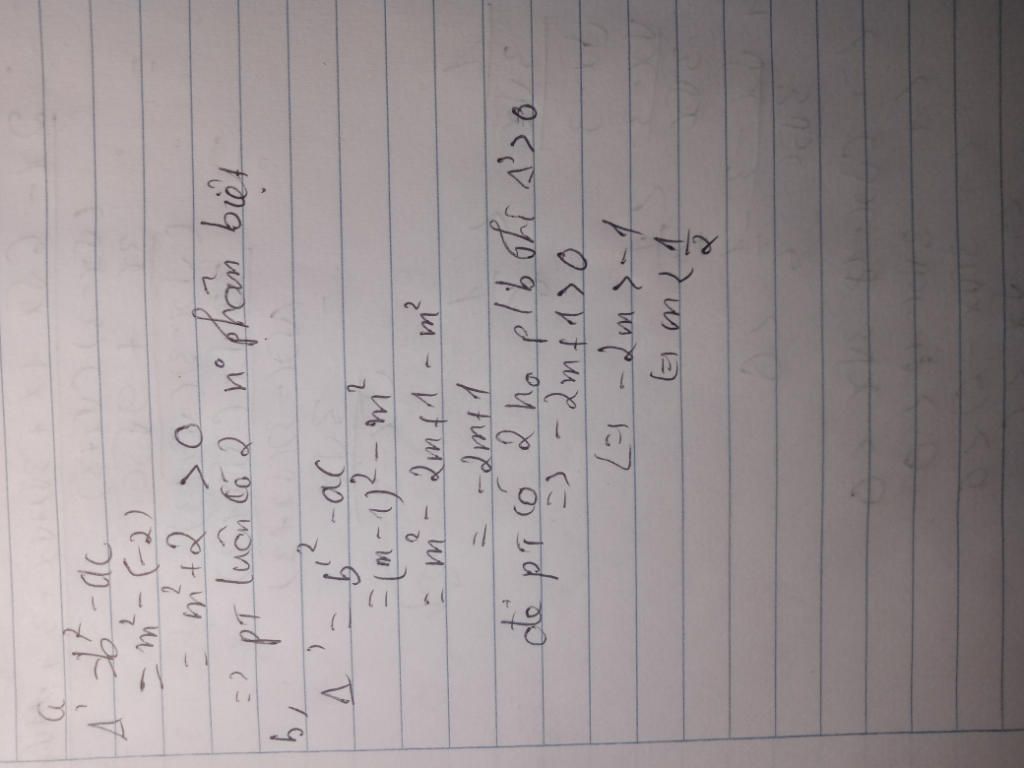 a
Δ' = b'² - ac
= m² - (-2)
= m² + 2 > 0
=> PT luôn có 2 n° phân biệt
b,
Δ' = b'² - ac
= (m - 1)² - m²
= m² - 2m + 1 - m²
= -2m + 1
để PT có 2 no p/b thì Δ' > 0
=> - 2m + 1 > 0
(=) - 2m > - 1
(=) m < 1/2